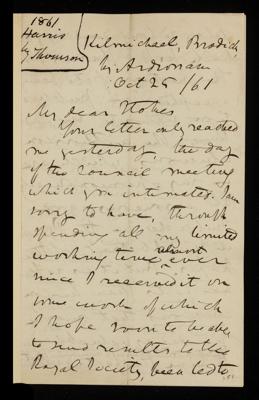 1861
Harris
by Thomson
Kilmichael, Brodick
by Ardrossan
Oct 25 /61
My dear Stokes
Your letter only reached
me yesterday, the day
of the council meeting
which you intimated. I am
sorry to have, through
spending all my limited
working time almost ever
since I received it on
some work of which
I hope soon to be able
to send results to the
Royal Society, been led to